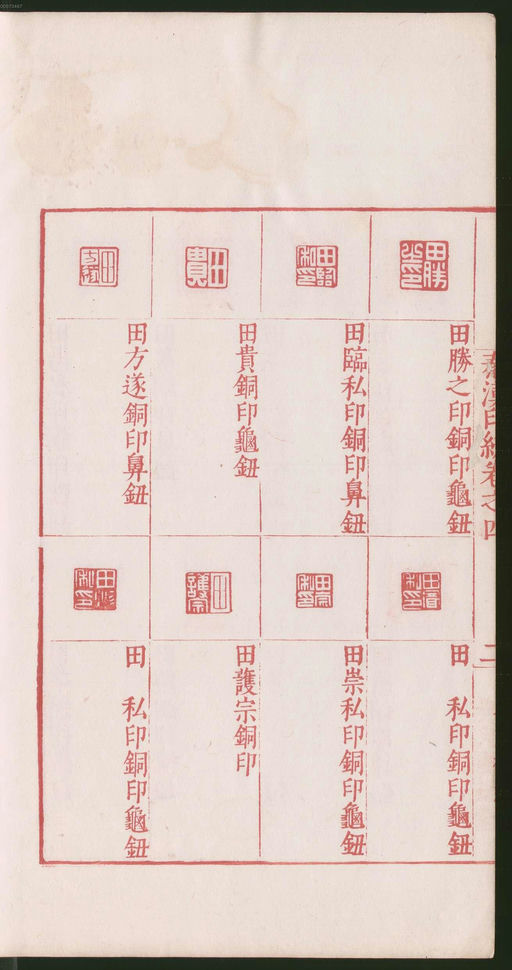 秦漢印統卷之四
二
田勝之印銅印龜鈕
田臨私印銅印鼻鈕
田貴銅印龜鈕
田方遂銅印鼻鈕
田 私印銅印龜鈕
田崇私印銅印龜鈕
田護宗銅印
田 私印銅印龜鈕